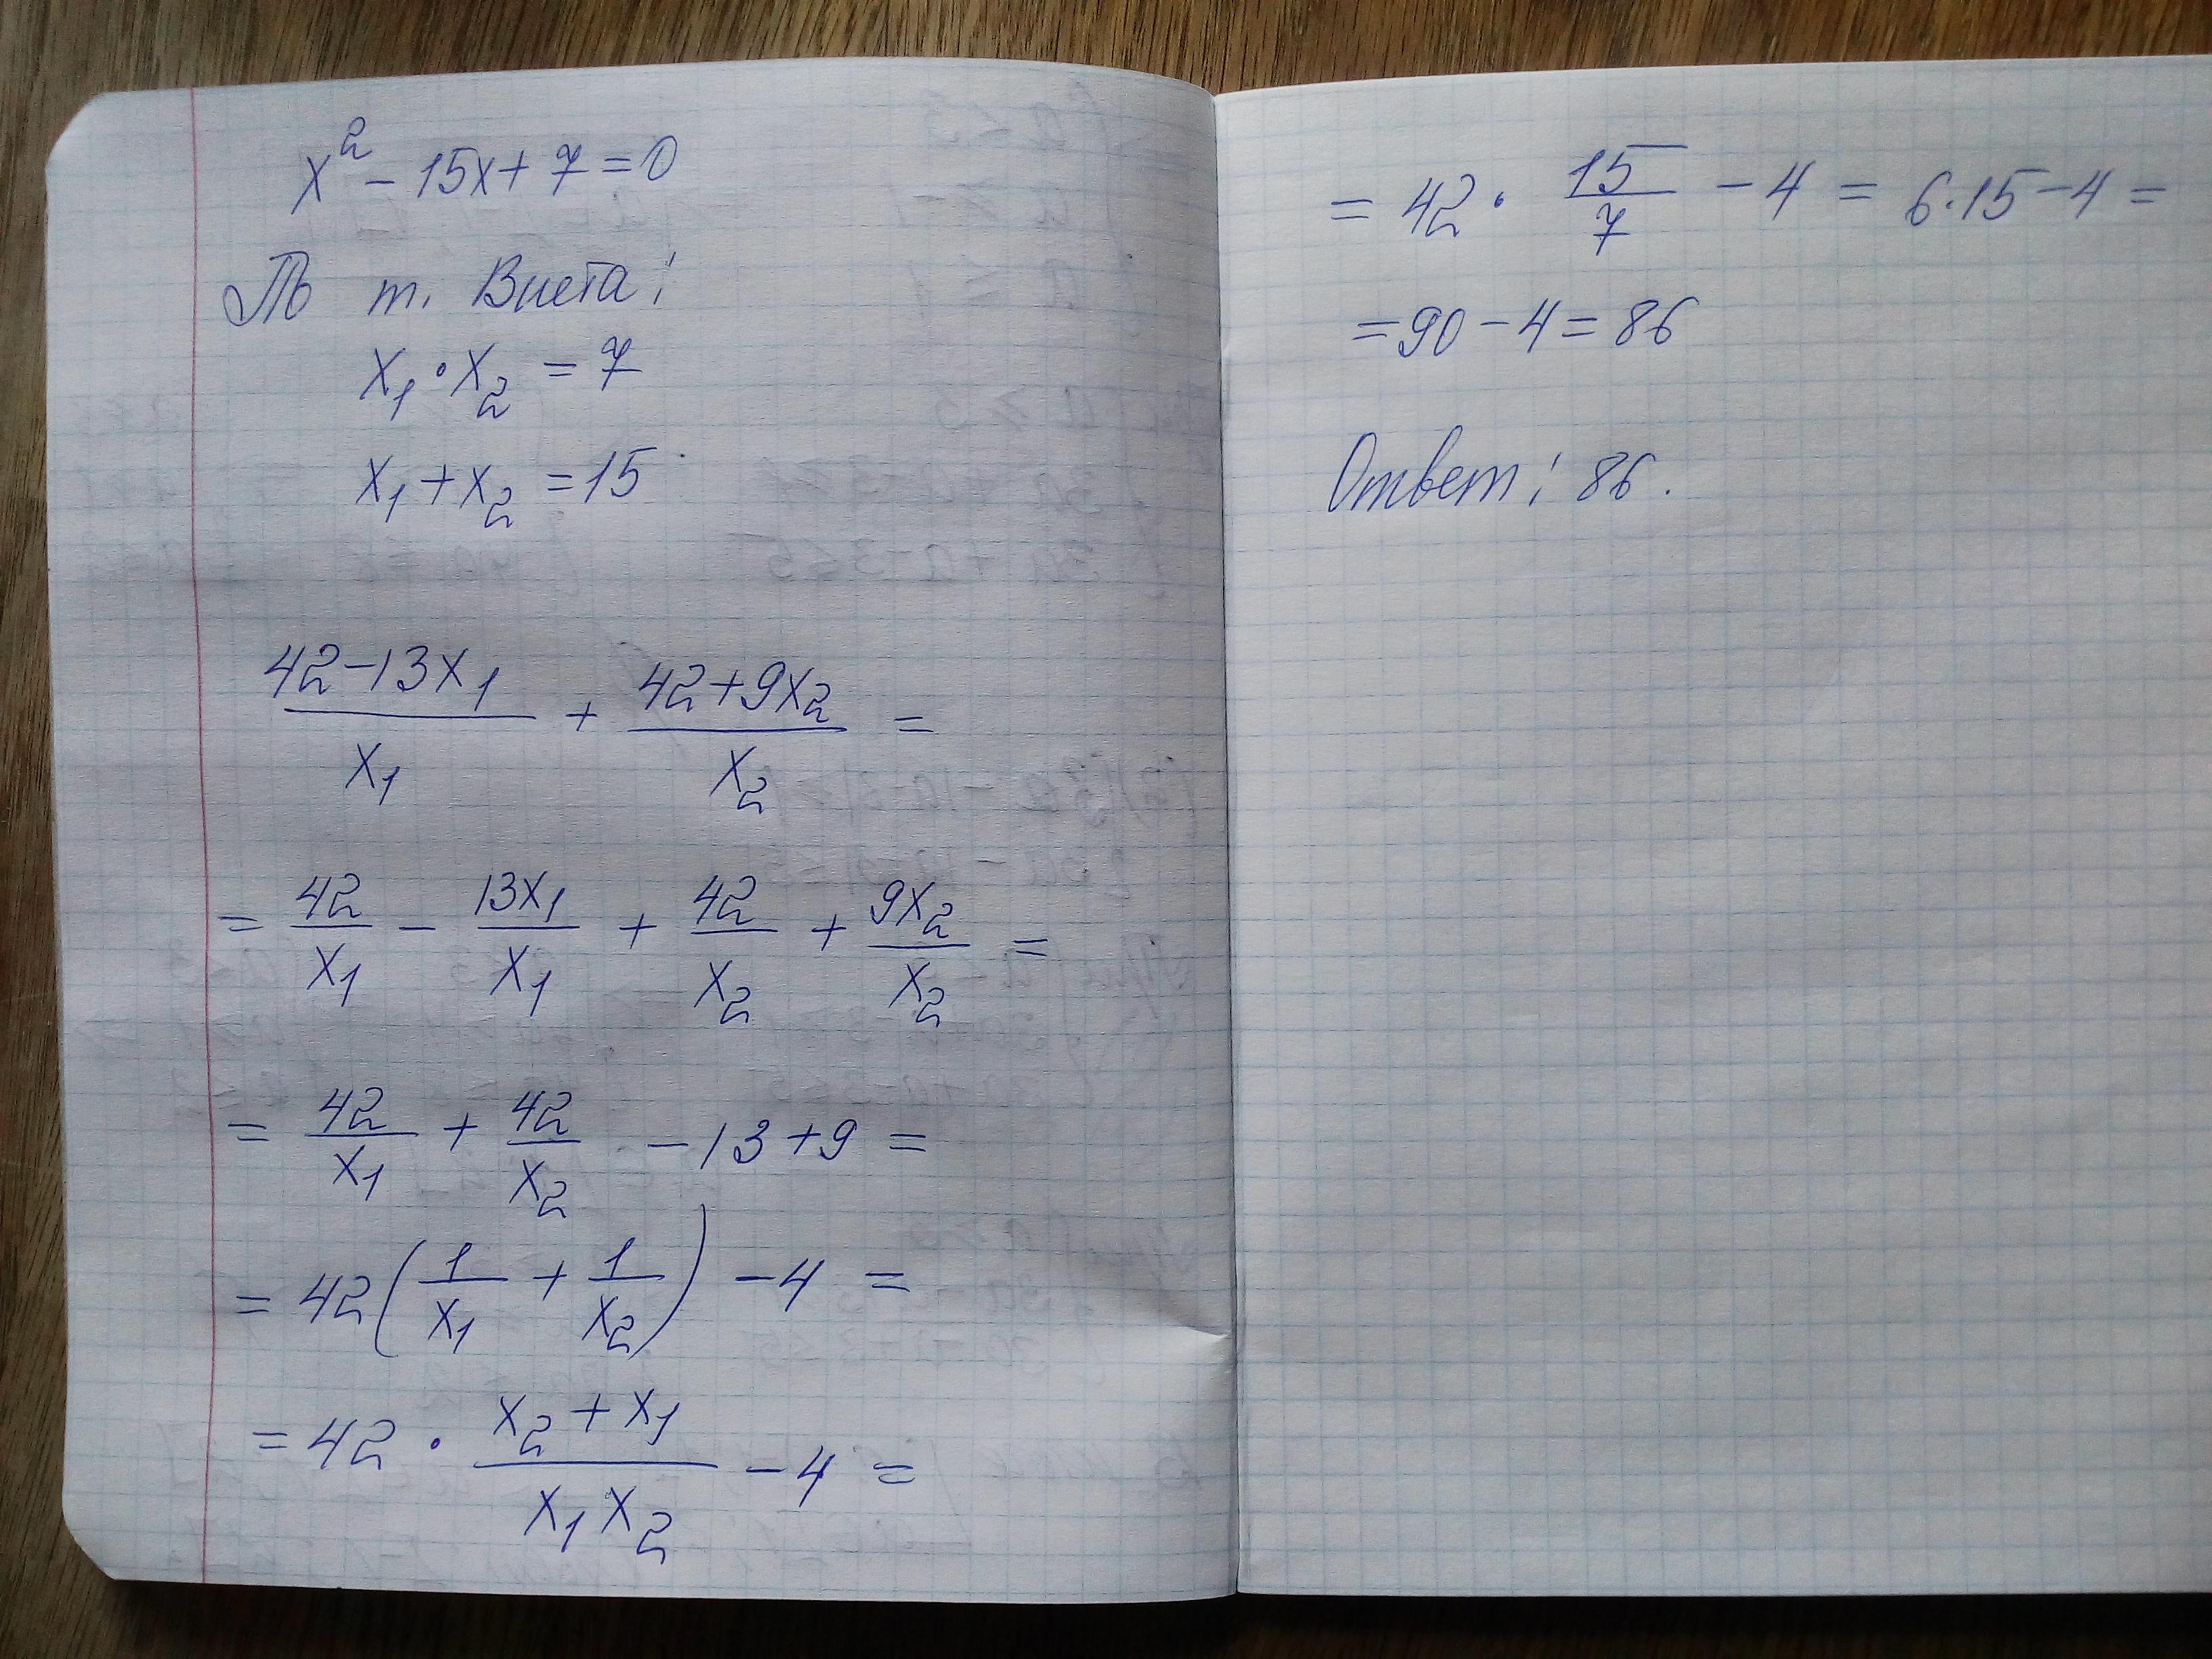 x² - 15x + 7 = 0
По т. Виета:
x₁ · x₂ = 7
x₁ + x₂ = 15
(42 - 13x₁)/x₁ + (42 + 9x₂)/x₂ =
= 42/x₁ - 13x₁/x₁ + 42/x₂ + 9x₂/x₂ =
= 42/x₁ + 42/x₂ - 13 + 9 =
= 42(1/x₁ + 1/x₂) - 4 =
= 42 · (x₂ + x₁)/(x₁x₂) - 4 =
= 42 · 15/7 - 4 = 6 · 15 - 4 =
= 90 - 4 = 86
Ответ: 86.